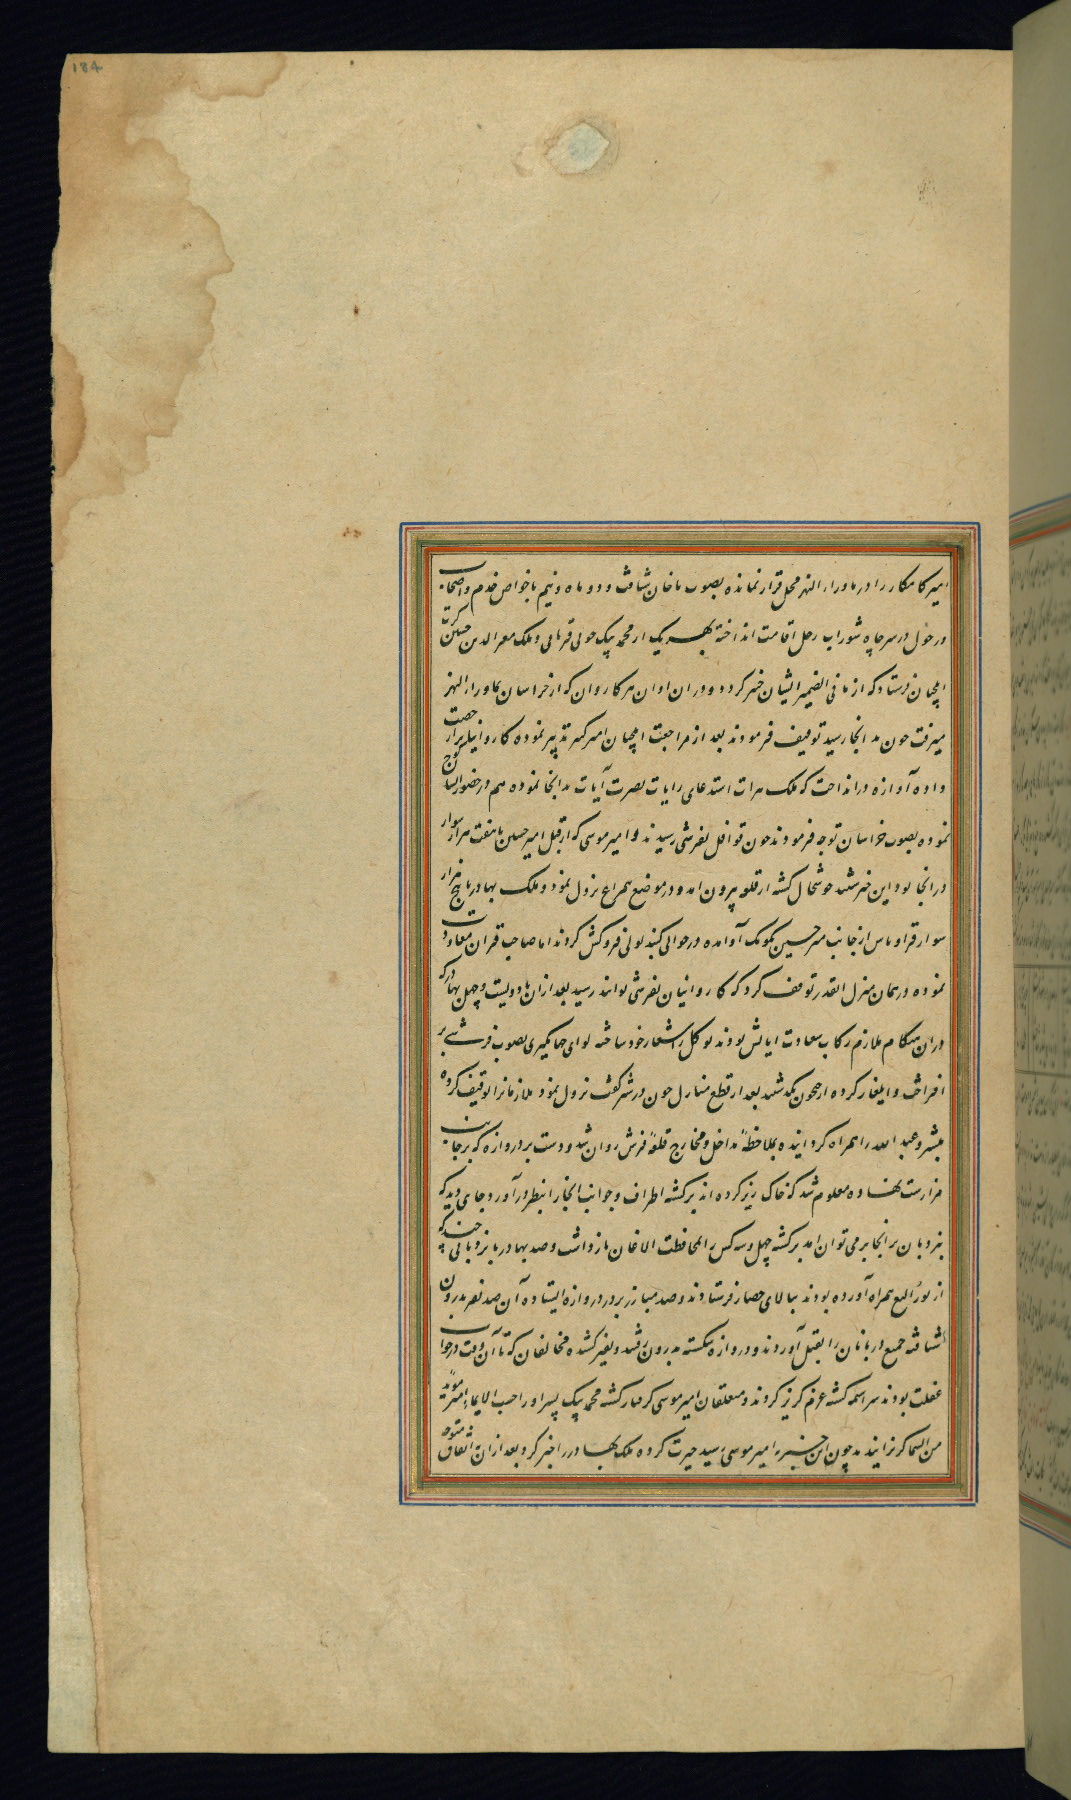 184
امیر کامکار را در ماوراء النهر محل قرار نمانده بصوب ماخان شتافت و دو ماه و نیم با خواص خدم و اصحاب
در حول در سر چاه شوراب رحل اقامت انداخته بهر یک از محمد بیک جونی قربانی و ملک معز الدین حسین کرت
ایلچیان فرستاد که از ما فی الضمیر ایشان خبر گردد و در ان اوان هر کاروان که از خراسان بماوراء النهر
میرفت چون بدانجا رسید توقیف فرمودند بعد از مراجعت ایلچیان امیر تدبیر نموده کاروانیان را رخصت
داده آوازه در انداخت که ملک هرات استدعای رایات نصرت آیات بدانجا نموده هم در حضور ایشان کوچ
نموده بصوب خراسان توجه فرمودند چون قوافل بقرشی رسیدند و امیر موسی که از قبل امیر حسین با هفت هزار سوار
در انجا بود این خبر شنید خوشحال گشته از قلعه بیرون آمد و در موضع نزول نمود و ملک بهادر با پنج هزار
سوار قراوناس از جانب میر حسین بکومک آو آمده در حوالی کنبد لولی فروکش کردند اما صاحب قران معاودت
نموده در همان منزل انقدر توقف کرد که کاروانیان بقرشی توانند رسید بعد ازان با دویست و چهل بهادر که
دران هنگام ملازم رکاب سعادت ایابش بودند توکل را شعار خود ساخته لوای جهانگیری بصوب قرشی بر
افراخت و ایلغار کرده از جیحون بگذشتند بعد از قطع منازل چون در شرکفت نزول نمود ملازمانرا توقیف کرده
مبشر و عبد الله را همراه گردانیده بملاحظهٔ مداخل و مخارج قلعهٔ قرشی روان شد و دست بر دروازه که بر جانب
مزارست نهاده معلوم شد که خاک ریز کرده اند برگشته اطراف و جوانب انجا را بنظر در آورد و جای دید که
بنردبان بر انجا بر می توان آمد برگشته چهل و سه کس را بمحافظت الاغان بازداشت و صد بهادر با نردبانی چند که
از همراه آورده بودند ببالای حصار فرستادند و صد مبارز بر در دروازه ایستاده آن صد نفر بدرون
شتافته جمیع دربانان را بقتل آوردند و دروازه شکسته بدرون رفتند و نفیر کشیده مخالفان که تا آن وقت در خواب
غفلت بودند سراسیمه گشته عزم گریز کردند و متعلقان امیر موسی گرفتار گشته محمد بیک پسر او را حسب الایماء امیر موید
من السما گریزانیدند چون این خبر بامیر موسی رسید حیرت کرده ملک بهادر را خبر کرد بعد ازان باتفاق متوجه